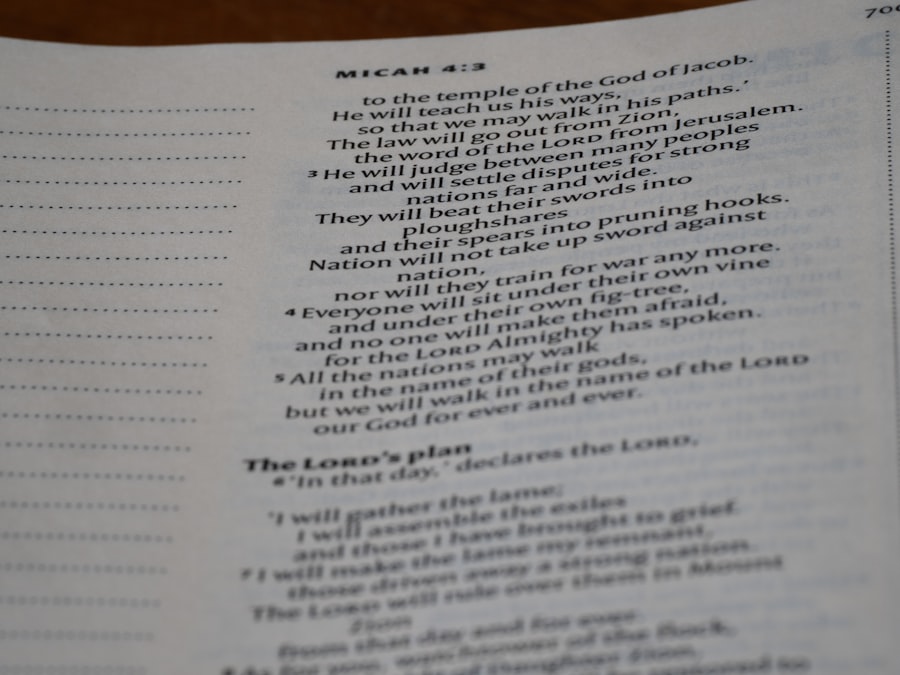 MICAH 4:3
to the temple of the God of Jacob.
He will teach us his ways,
so that we may walk in his paths.’
The law will go out from Zion,
the word of the LORD from Jerusalem.
3 He will judge between many peoples
and will settle disputes for strong
nations far and wide.
They will beat their swords into
ploughshares
and their spears into pruning hooks.
Nation will not take up sword against
nation,
nor will they train for war any more.
4 Everyone will sit under their own vine
and under their own fig-tree,
and no one will make them afraid,
for the LORD Almighty has spoken.
5 All the nations may walk
in the name of their gods,
but we will walk in the name of the LORD
our God for ever and ever.
The LORD’s plan
6 ‘In that day,’ declares the LORD,
‘I will gather the lame;
I will assemble the exiles
and those I have brought to grief.
7 I will make the lame my remnant,
those driven away a strong nation.
The LORD will rule over them in Mount
Zion
from that day and for ever.